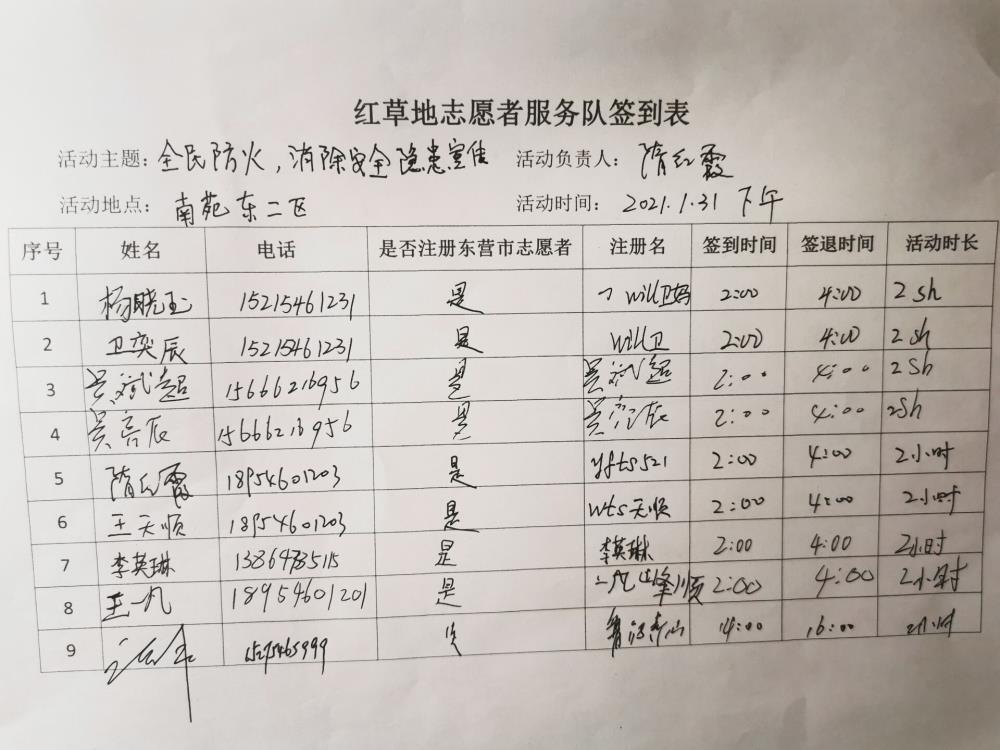 红草地志愿者服务队签到表
活动主题：全民防火，消除安全隐患宣传 活动负责人：隋红霞
活动地点：南苑东二区 活动时间：2021.1.31 下午
序号 姓名 电话 是否注册东营市志愿者 注册名 签到时间 签退时间 活动时长
1 杨晓玉 15215461231 是 will卫妈 2:00 4:00 2sh
2 卫奕辰 15215461231 是 will卫 2:00 4:00 2sh
3 吴斌超 15666216956 是 吴斌超 2:00 4:00 2sh
4 吴亮辰 15666216956 是 吴亮辰 2:00 4:00 2sh
5 隋红霞 18954601203 是 yfts521 2:00 4:00 2小时
6 王天顺 18954601203 是 wts天顺 2:00 4:00 2小时
7 李英琳 是 李英琳 2:00 4:00 2小时
8 王一凡 18954601201 是 2:00 4:00 2小时
9 14:00 16:00 2小时